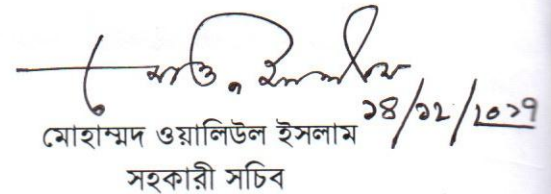 ১৪/১২/২০১৭
মোহাম্মদ ওয়ালিউল ইসলাম
সহকারী সচিব